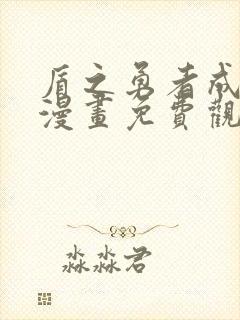 盾之勇者成
漫畫免費觀
淼淼君